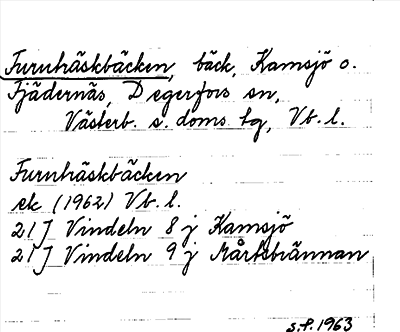 Furuträskbäcken, bäck, Kamsjö o.
Fjädernäs, Degerfors sn,
Västerb. s. doms. tg, Vb. l.
Furuträskbäcken
ek (1962) Vb. l.
21 J Vindeln 8 j Kamsjö
21 J Vindeln 9 j Mårtsbrännan
S.F. 1963